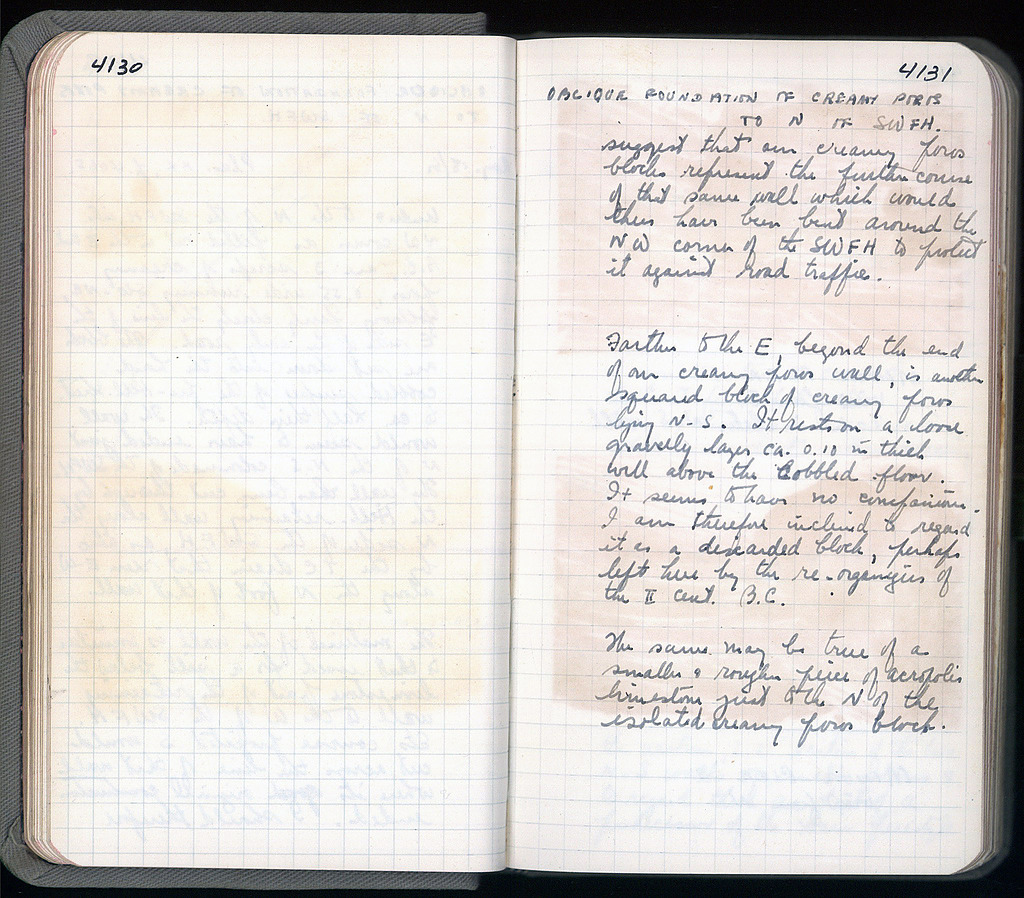 4130
4131
OBLIQUE FOUNDATION OF CREAMY POROS
TO N OF SWFH.
suggest that our creamy poros
blocks represent the further course
of that same wall which would
thus have been bent around the
NW corner of the SWFH to protect
it against road traffic.
Farther to the E, beyond the end
of our creamy poros wall, is another
squared block of creamy poros
lying N-S. It rests on a loose
gravelly layer ca. 0.10 m thick
well above the cobbled floor.
It seems to have no companion.
I am therefore inclined to regard
it as a discarded block, perhaps
left here by the re-organizers of
the II cent. B.C.
The same may be true of a
smaller & rougher peice of acropolis
limestone just to the N of the
isolated creamy poros block.